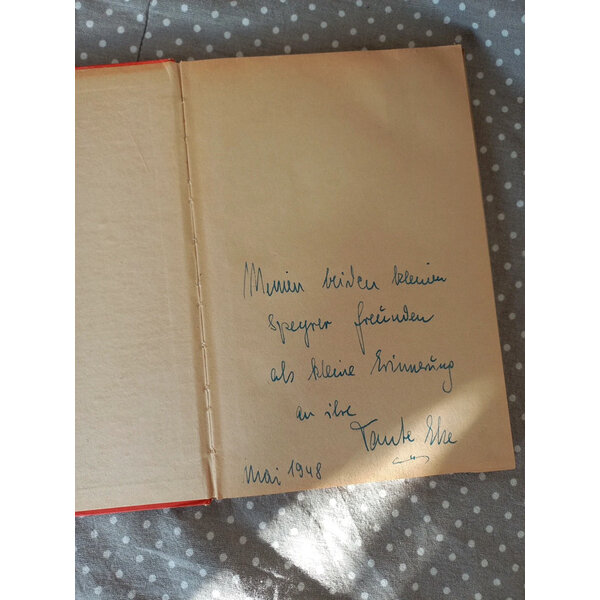 Meinen beiden kleinen
Speyrer Freunden
als kleine Erinnerung
an ihre
Tante Else
Mai 1948